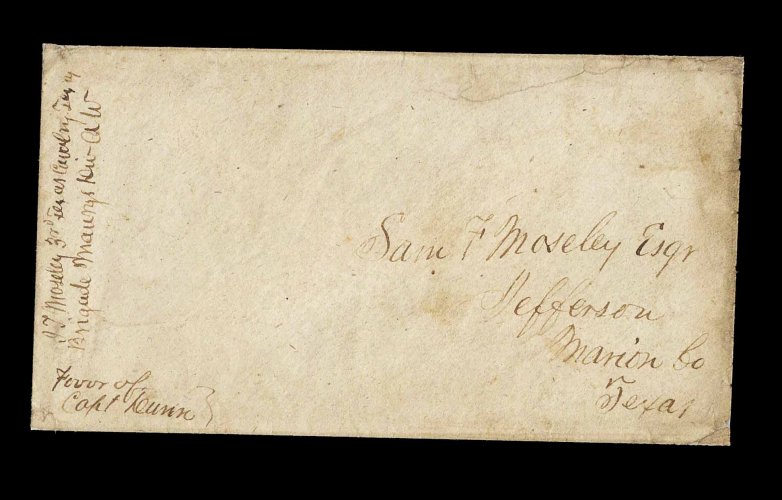 Moseley 3rd Texas Cavalry Texas
Brigade Maurys Div A W
Sam F Moseley Esqr
Jefferson
Marion Co
Texas
Favor of
Capt Dunn